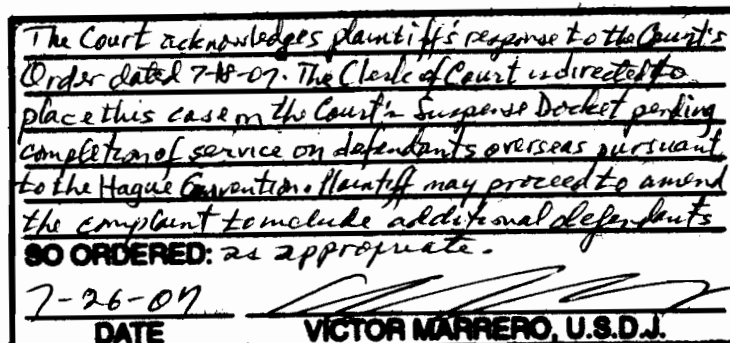 The Court acknowledges plaintiff's response to the Court's
Order dated 7-18-07. The Clerk of Court is directed to
place this case on the Court's Suspense Docket pending
completion of service on defendants overseas pursuant
to the Hague Convention. Plaintiff may proceed to amend
the complaint to include additional defendants
SO ORDERED: as appropriate.
7-26-07
DATE VICTOR MARRERO, U.S.D.J.